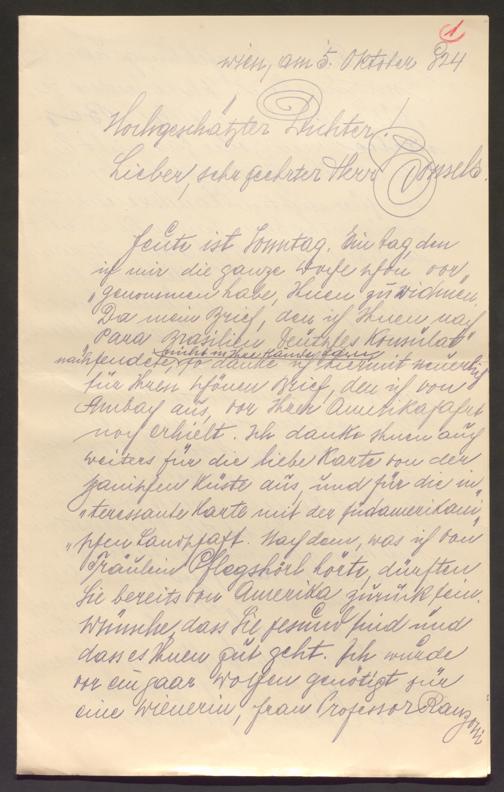 1
Wien, am 5. Oktober 924
Hochgeschätzter Dichter!
Lieber, sehr geehrter Herr Bonsels.
Heute ist Sonntag. Ein Tag, den
ich mir die ganze Woche schon vor„
„genommen habe, Ihnen zu widmen.
Da mein Brief, den ich Ihnen nach
Para Brasilien Deutsches Konsulat
nicht in Ihre Hände kam
nachsendete, so danke ich hiermit neuerlich
für Ihren schönen Brief, den ich von
Ambach aus, vor Ihrer Amerikafahrt
noch erhielt. Ich danke Ihnen auch
weiters für die liebe Karte von der
spanischen Küste aus, und für die in„
„teressante Karte mit der südamerikani„
„schen Landschaft. Nach dem, was ich von
Fräulein Pflegshörl hörte, dürften
Sie bereits von Amerika zurück sein.
Wünsche, dass Sie gesund sind und
dass es Ihnen gut geht. Ich wurde
vor ein paar Wochen genötigt für
eine Wienerin, Frau Professor Ranzoni